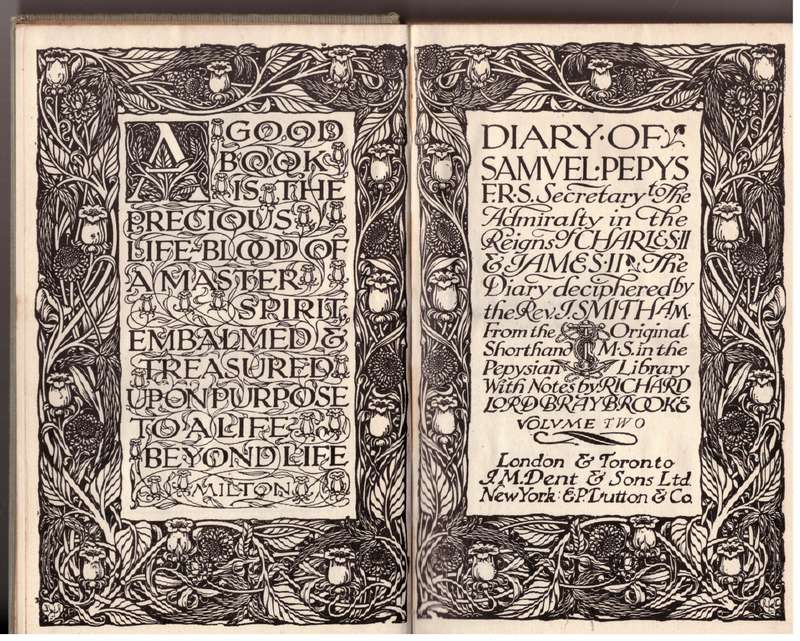 A GOOD
BOOK
IS THE
PRECIOUS
LIFE-BLOOD OF
A MASTER
SPIRIT,
EMBALMED &
TREASURED
UPON PURPOSE
TO A LIFE
BEYOND LIFE
MILTON
DIARY·OF
SAMVEL·PEPYS
F.R.S. Secretary to The
Admiralty in the
Reigns of CHARLES II
& JAMES·II The
Diary deciphered by
the Rev. J. SMITH AM.
From the Original
Shorthand M·S. in the
Pepysian Library
With Notes by RICHARD
LORD BRAYBROOKE
VOLVME TWO
London & Toronto
J.M. Dent & Sons Ltd
New York: E.P. Dutton & Co.